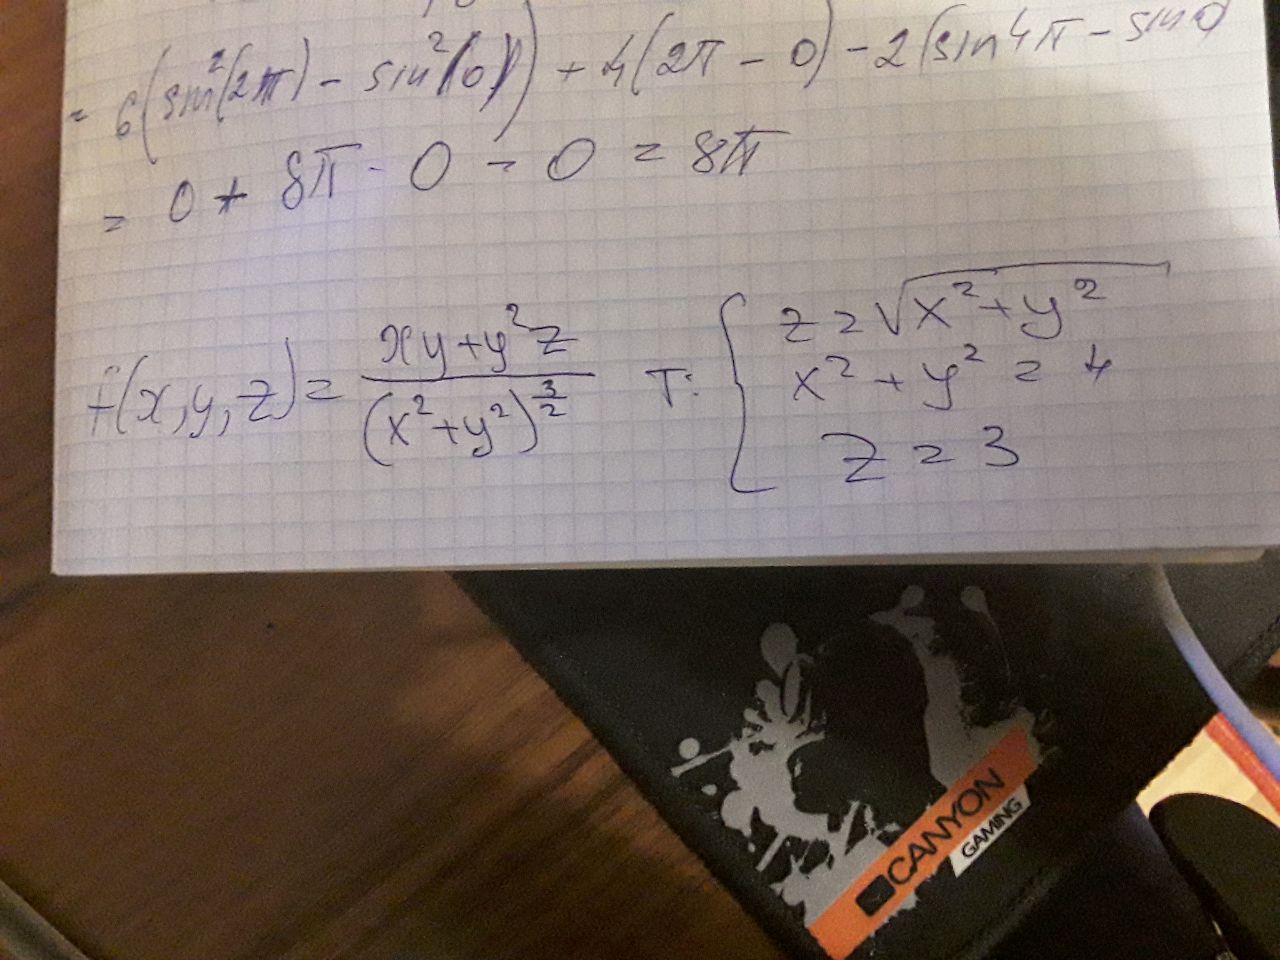 = 6(sin²(2π) - sin²(0)) + 4(2π - 0) - 2(sin4π - sin0)
= 0 + 8π - 0 - 0 = 8π
f(x,y,z) = (xy+y²z)/(x²+y²)^(3/2) T: { z = √(x²+y²)
x² + y² = 4
z = 3
CANYON
GAMING